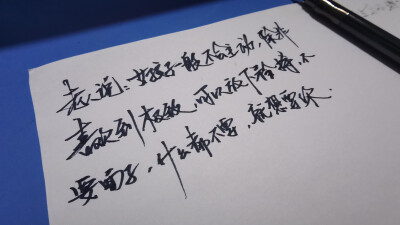 老人说:女孩子一般不会主动,除非
喜欢到极致,可以放下矜持,不
要面子,什么都不要,就想要你.